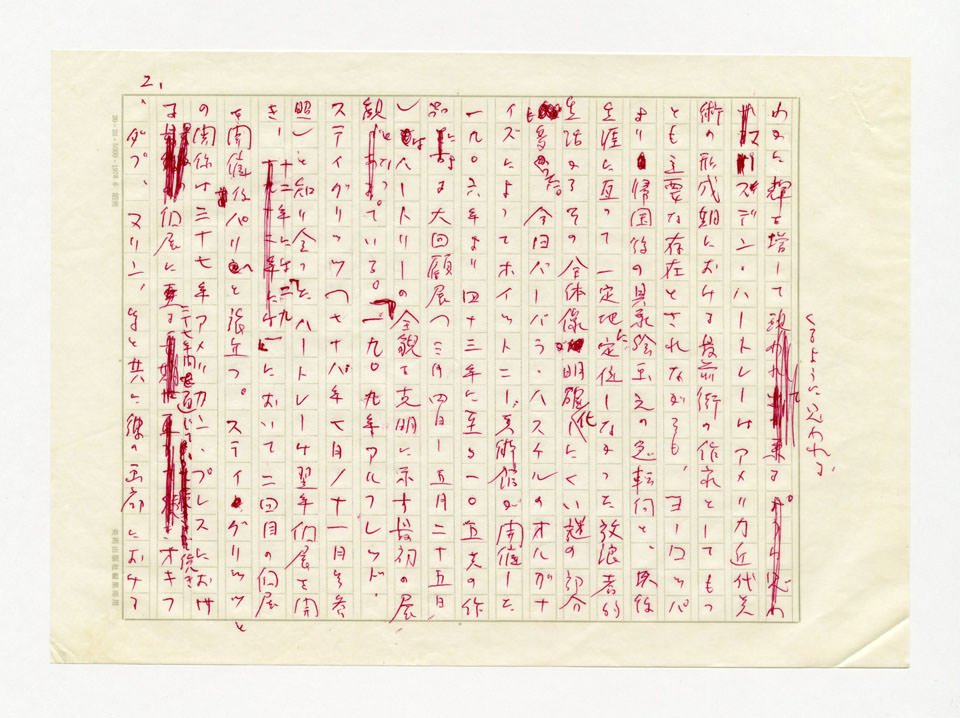 2.
わかに輝を増して現われ来る
くるように思われる。
マースデン・ハートレーはアメリカ近代美
術の形成期における最前衛の作家としてもっ
とも主要な存在とされながらも、ヨーロッパ
より帰国後の具象絵画えの急転向と、
生涯に亙って一定地に定住しなかった放浪者的
生活のその全体像明確化しにくい謎の部分
多 今日バーバラ・ハスケルのオルガナ
イズによってホイットニー美術館が開催した
一九〇六年より四十三年に至る一〇五点の作
品 大回顧展(三月四日ー五月二十五日
)はハートレーの全貌を克明に示す最初の展
観となっている。一九〇九年アルフレッド・
スティグリッツ(七十八年七月/十一月号参
照)と知り合ったハートレーは翌年個展を開
き、十二年には二九一において二回目の個展
を開催後パリへと旅立つ。スティグリッツと
の関係は三十七年アメリカン・プレスにおけ
る個展に至る 二十七年間を通じて続き オキフ
、ダブ、マリン、 等と共に彼の画廊における
20×20
美術出版社編集部用